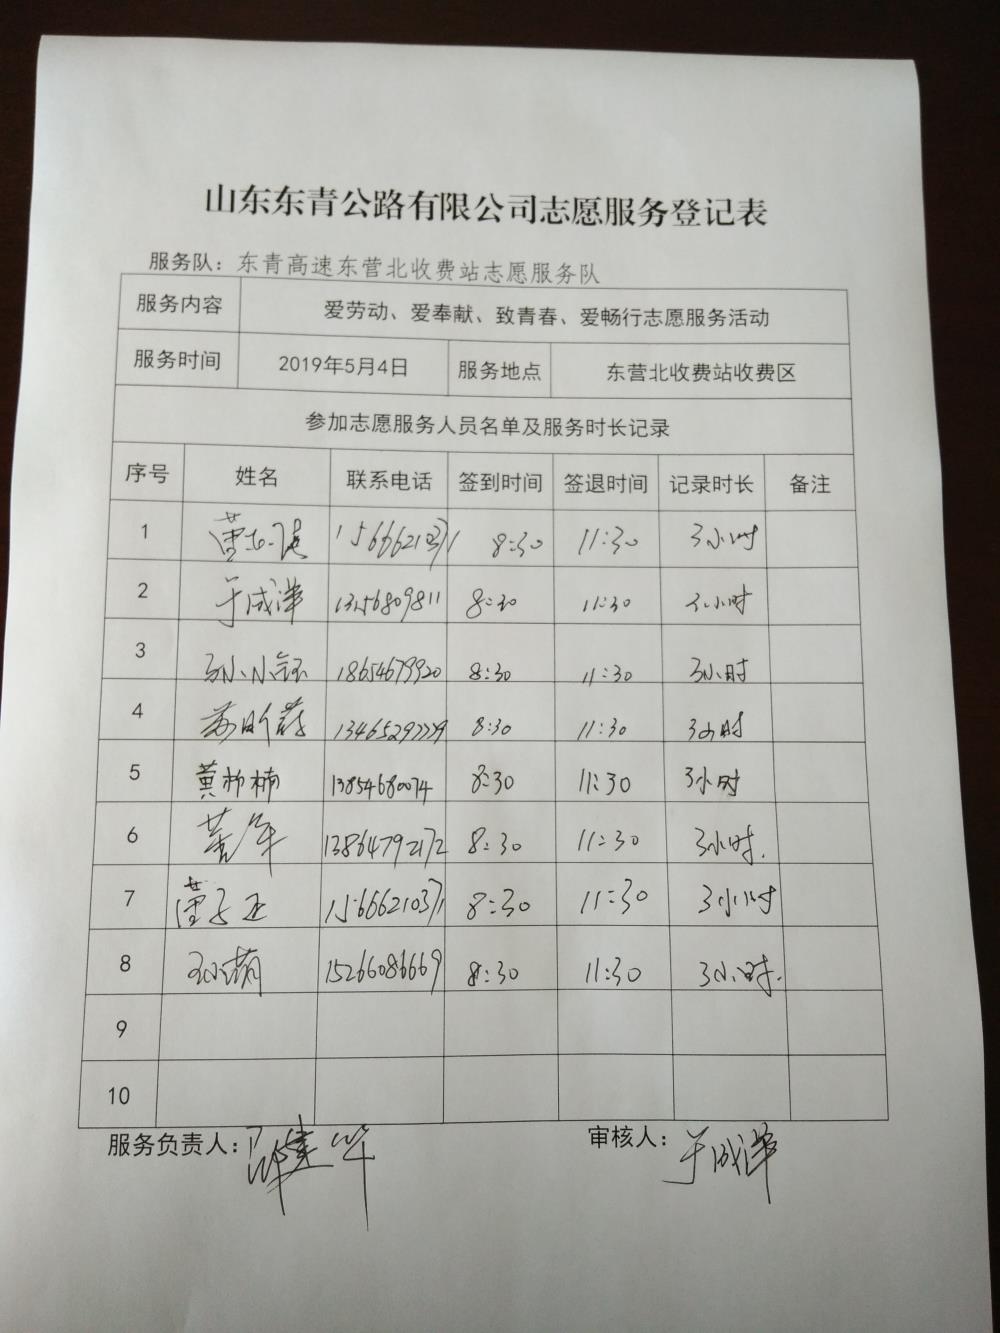 山东东青公路有限公司志愿服务登记表
服务队：东青高速东营北收费站志愿服务队
服务内容 爱劳动、爱奉献、致青春、爱畅行志愿服务活动
服务时间 2019年5月4日 服务地点 东营北收费站收费区
参加志愿服务人员名单及服务时长记录
序号 姓名 联系电话 签到时间 签退时间 记录时长 备注
1 15666210371 8:30 11:30 3小时
2 于成津 8:30 11:30 3小时
3 孙小钰 18654679920 8:30 11:30 3小时
4 8:30 11:30 3小时
5 黄柳楠 13854680074 8:30 11:30 3小时
6 13864792172 8:30 11:30 3小时.
7 15666210371 8:30 11:30 3小时
8 15266086669 8:30 11:30 3小时.
9
10
服务负责人： 审核人：于成津